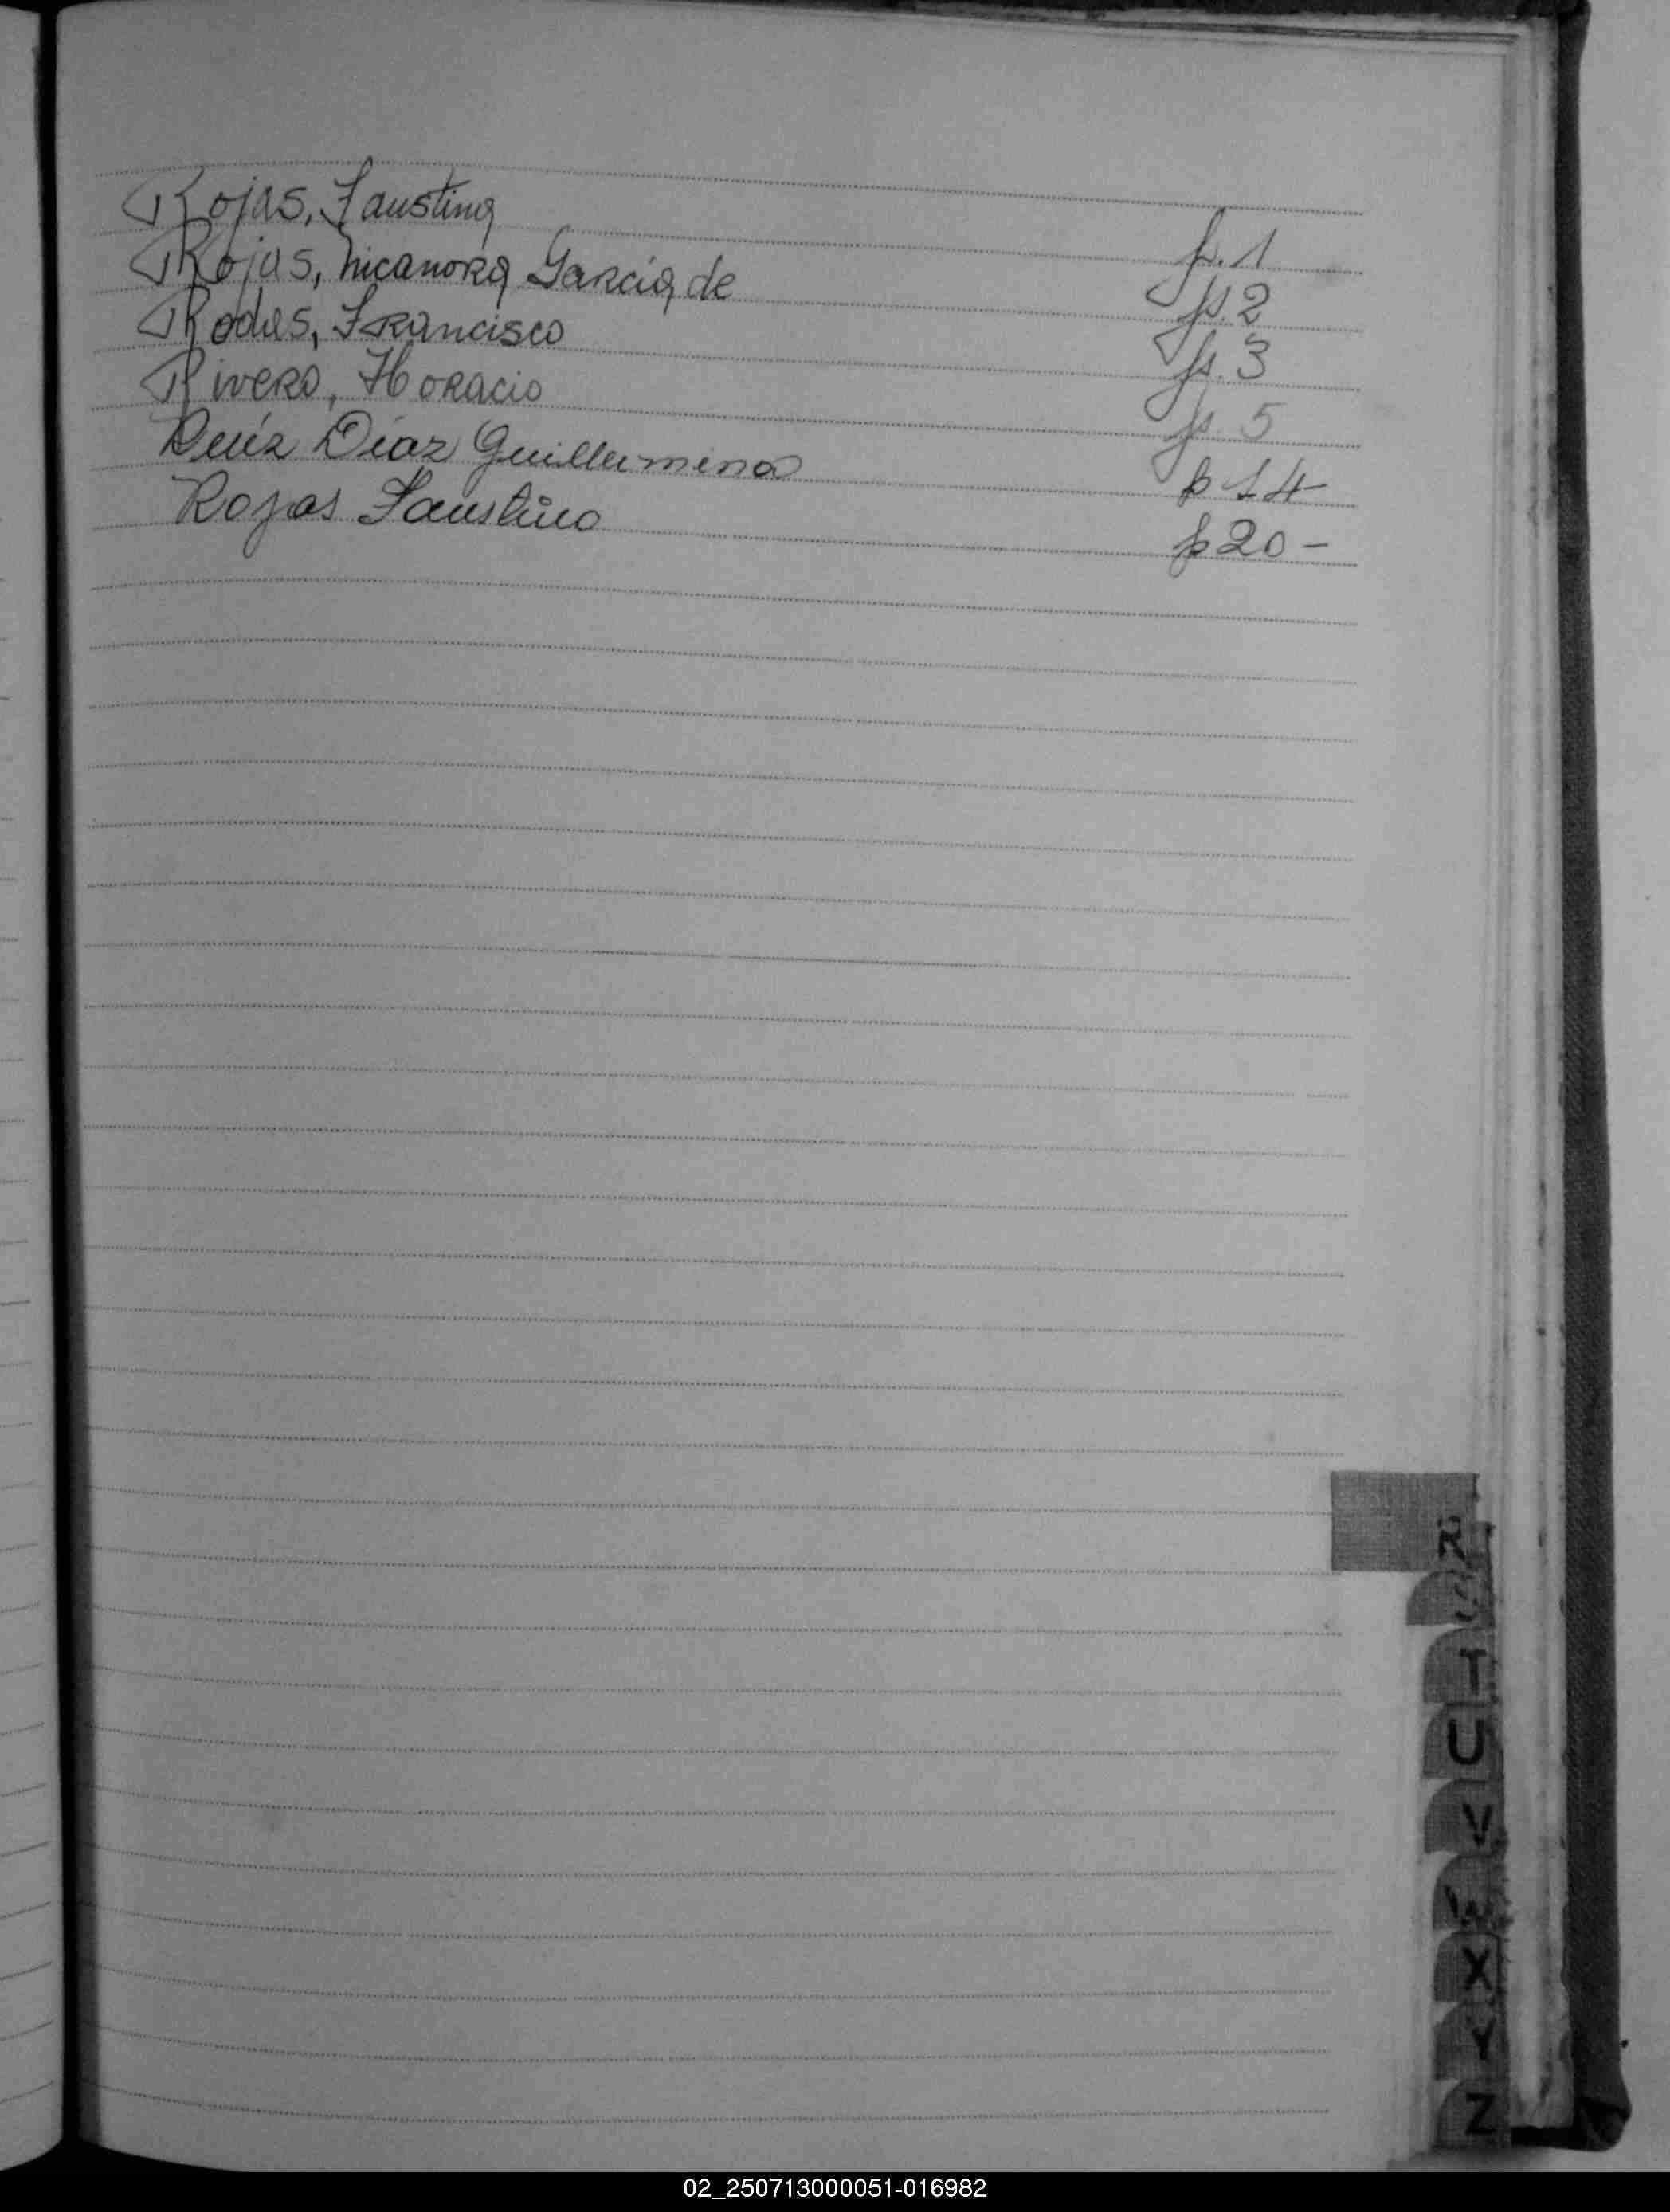 Rojas, Faustina fs. 1
Rojas, Nicanora García de fs. 2
Francisco fs. 3
Rivero, Horacio fs. 5
Ruíz Díaz Guillermina p 14
Rojas Faustino p 20 -
R
S
T
U
V
W
X
Y
Z
02_250713000051-016982